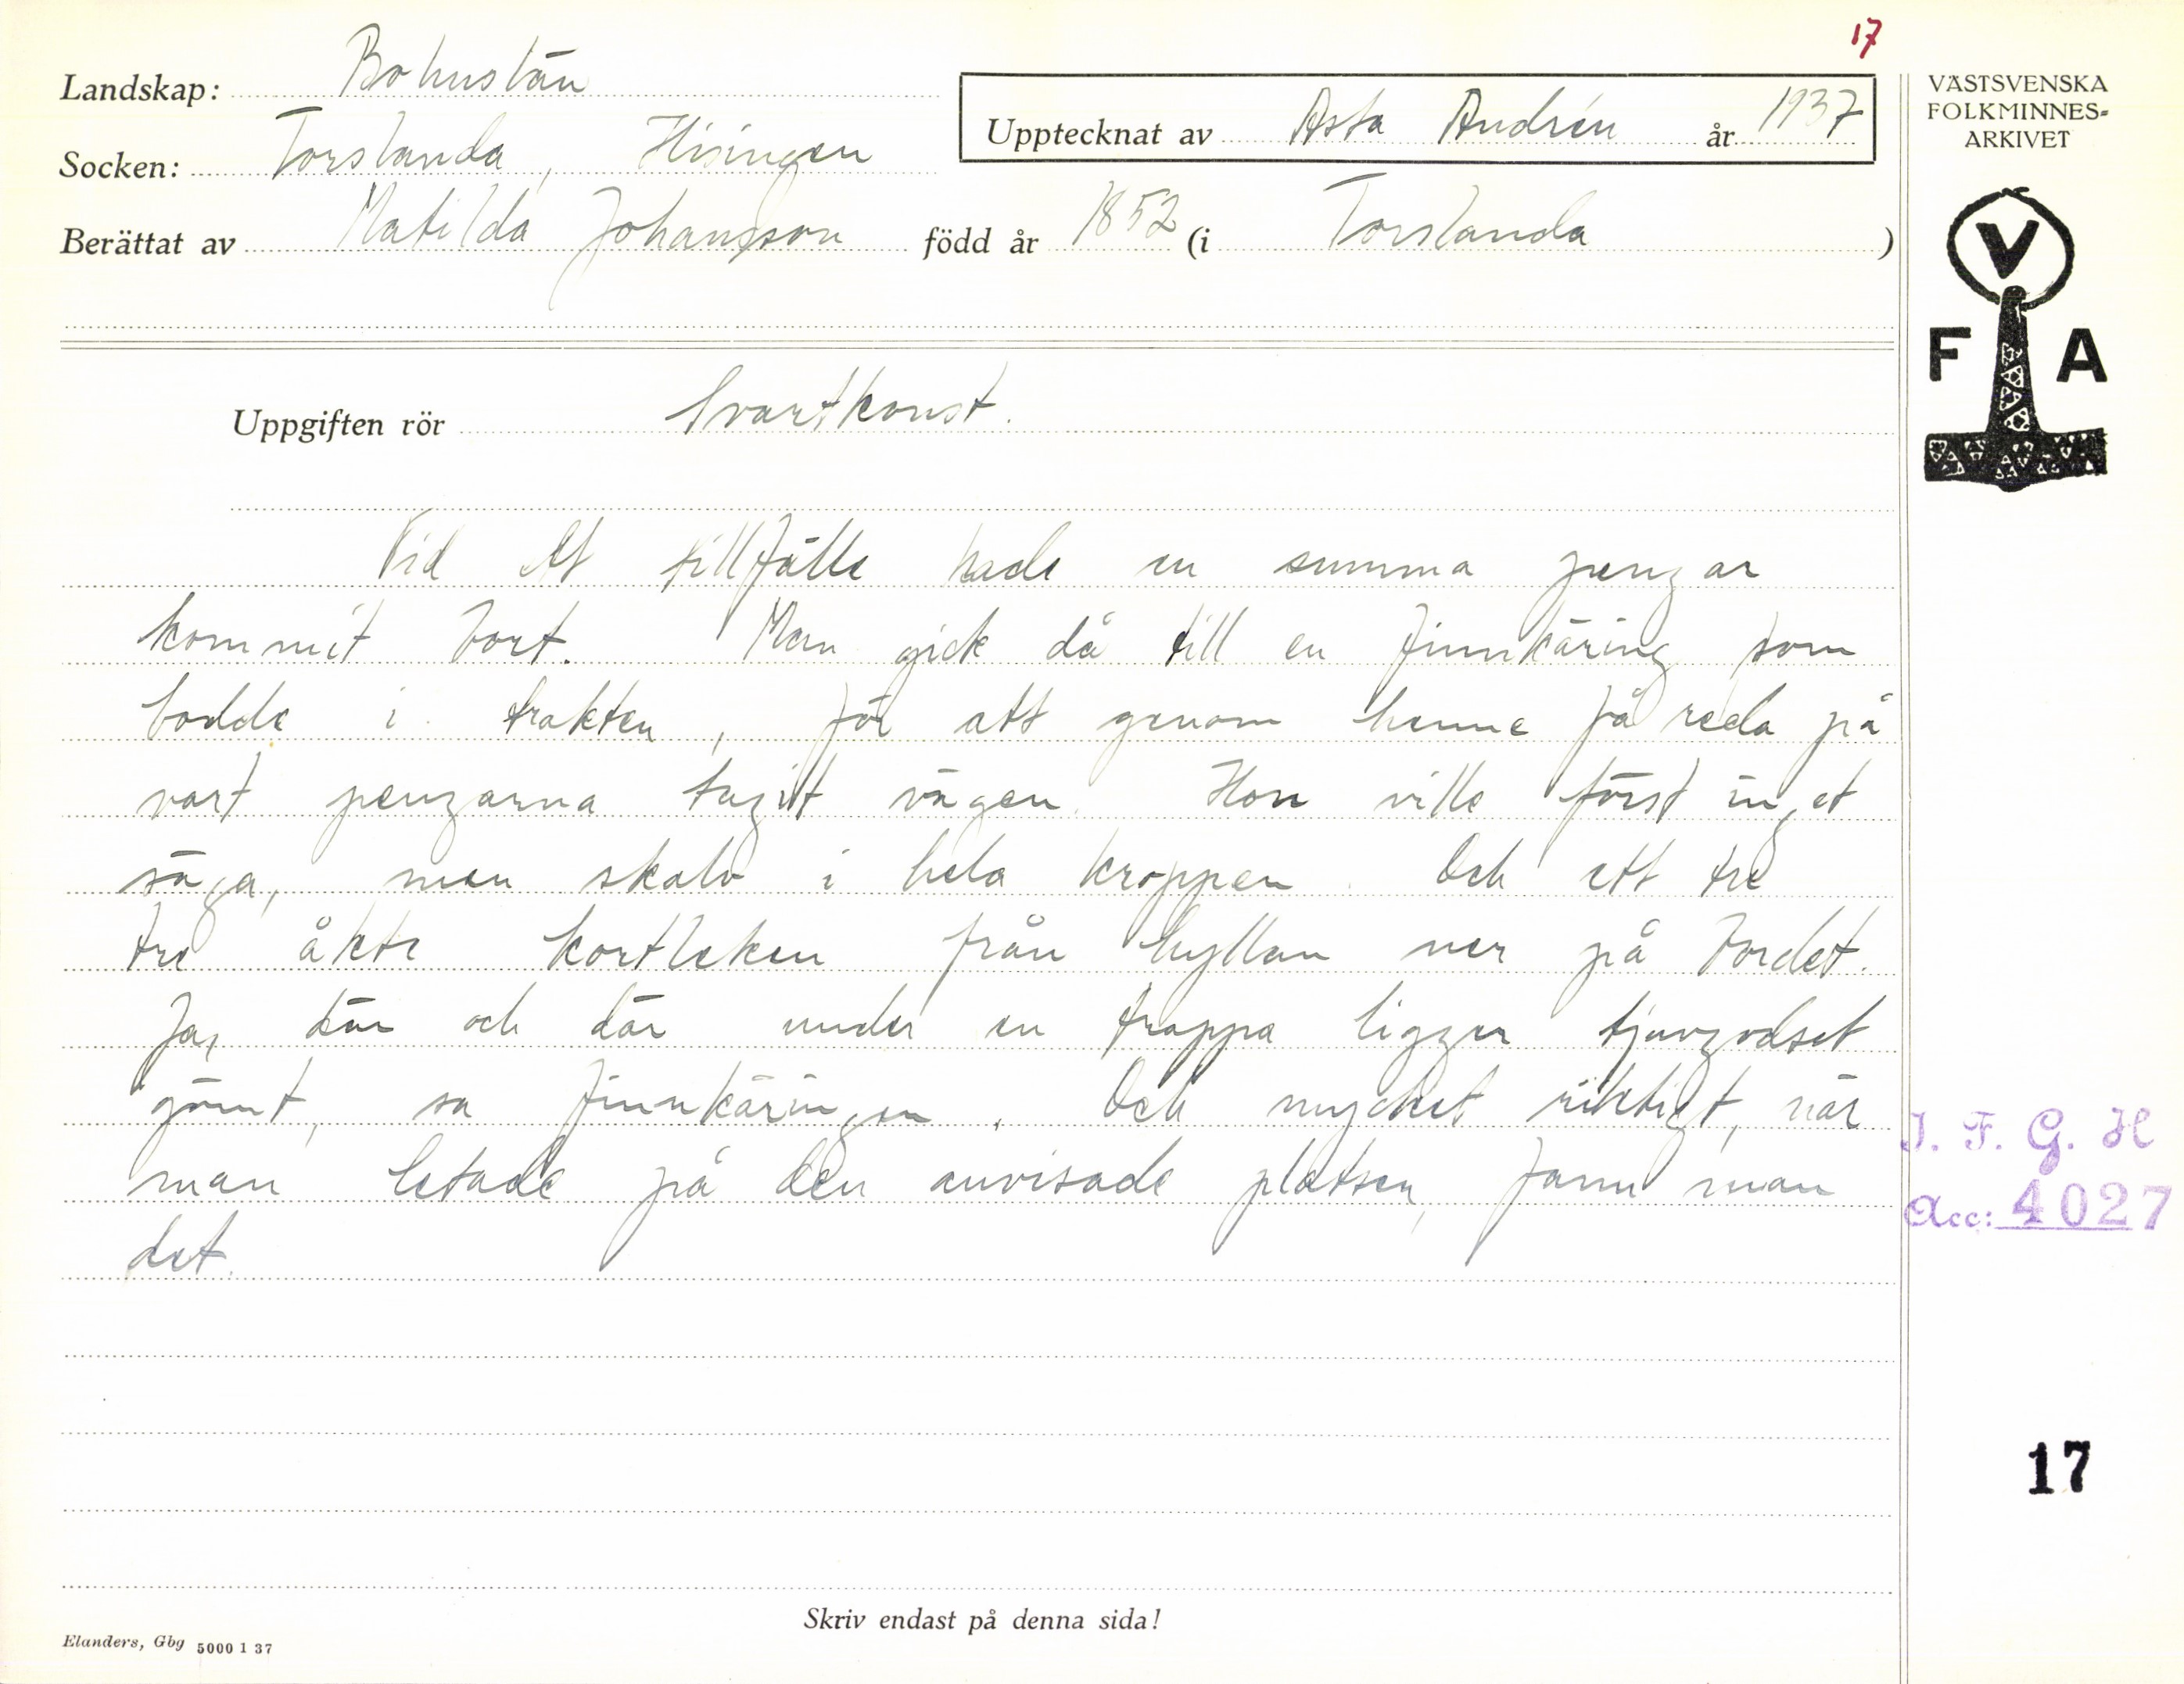 17
Landskap: Bohuslän
Socken: Torslanda, Hisingen
Upptecknat av Asta Andrén år 1937
Berättat av Matilda Johansson född år 1852 (i Torslanda )
VÄSTSVENSKA
FOLKMINNES-
ARKIVET
V
F A
Uppgiften rör Svartkonst.
Vid ett tillfälle hade en summa pengar
kommit bort. Man gick då till en finnkäring som
bodde i trakten, för att genom henne få reda på
vart pengarna tagit vägen. Hon ville först inget
säga, men skalv i hela kroppen. Och ett tre
tre åkte kortleken från hyllan ner på bordet.
Ja, där och där under en trappa ligger tjuvgodset
gömt, sa finnkäringen. Och mycket riktigt, när
man letade på den anvisade platsen, fann man
det.
I. F. G. H
Acc: 4027
17
Skriv endast på denna sida!
Elanders, Gbg 5000 1 37